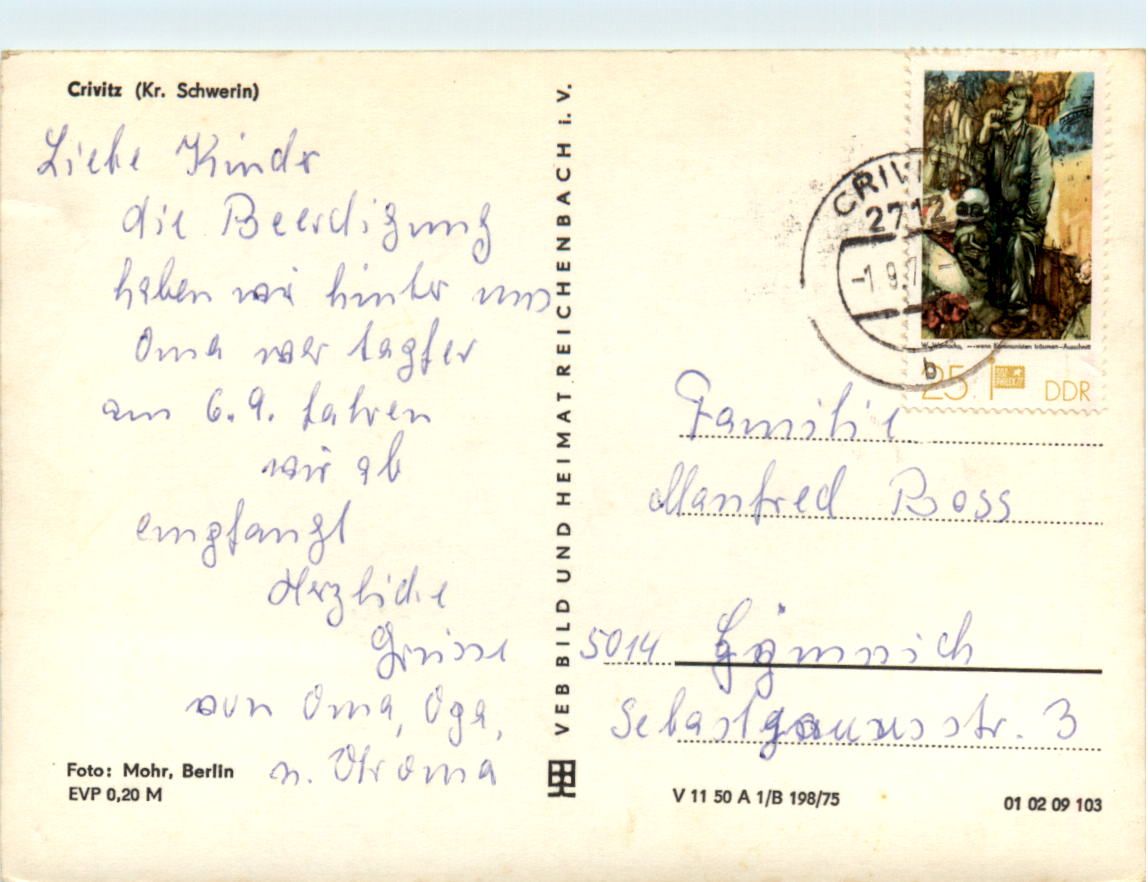 Crivitz (Kr. Schwerin)
Liebe Kinder
die Beerdigung
haben wir hinter uns
Oma war tapfer
am 6.9. fahren
wir ab
empfangt
Herzliche
Grüsse
von Oma, Opa,
u. Uroma
Foto: Mohr, Berlin
EVP 0,20 M
VEB BILD UND HEIMAT REICHENBACH i. V.
2712
-1.9.7
b
...wenn Kommunisten träumen-Ausschnitt
25
DDR
Familie
Manfred Boss
5014 Gymnich
str. 3
V 11 50 A 1/B 198/75
01 02 09 103